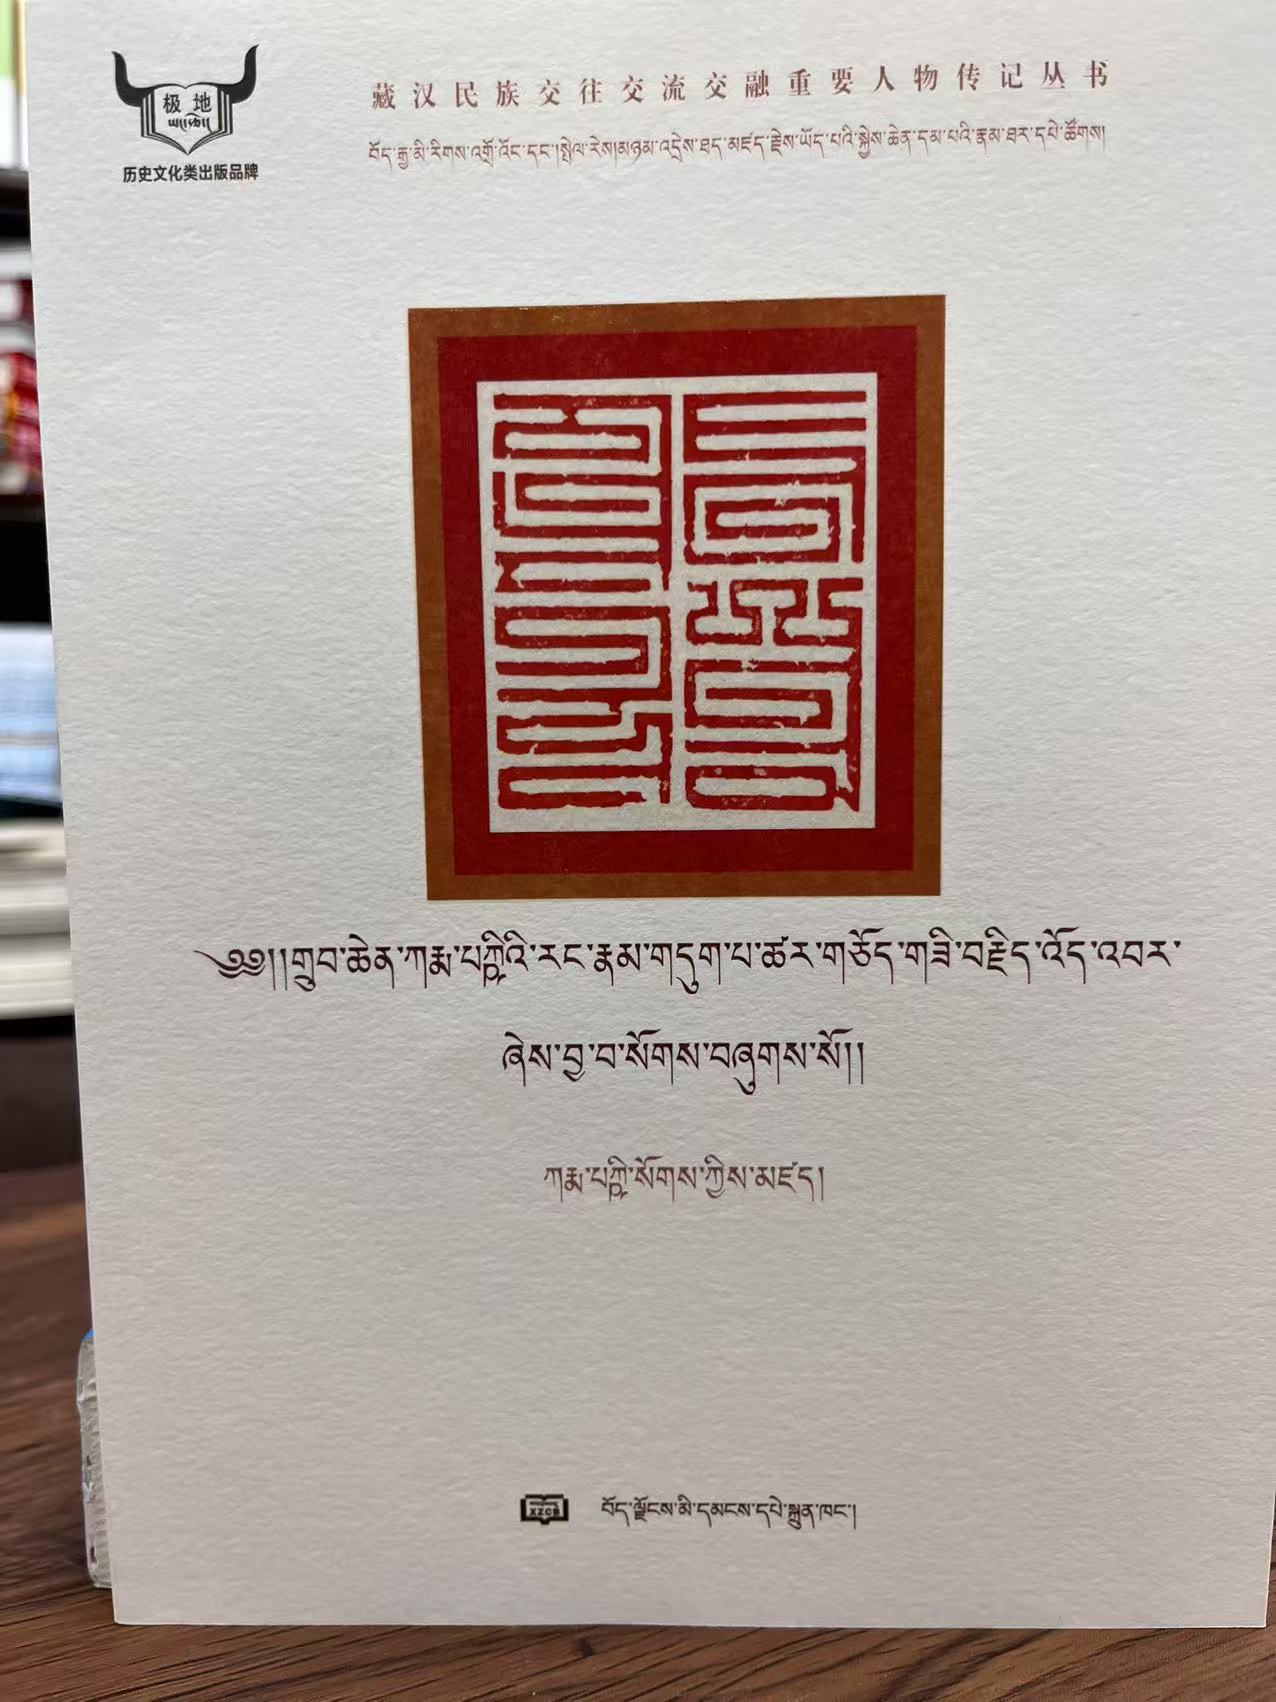 极地
历史文化类出版品牌
藏汉民族交往交流交融重要人物传记丛书
བོད་རྒྱ་མི་རིགས་འགྲོ་འོང་དང་།སྤེལ་རེས།མཉམ་འདྲེས་ཐད་མཛད་རྗེས་ཡོད་པའི་སྐྱེས་ཆེན་དམ་པའི་རྣམ་ཐར་དཔེ་ཚོགས།
༄༅།།གྲུབ་ཆེན་ཀརྨ་པཀྵིའི་རང་རྣམ་གདུག་པ་ཚར་གཅོད་གཟི་བརྗིད་འོད་འབར་
ཞེས་བྱ་བ་སོགས་བཞུགས་སོ།།
ཀརྨ་པཀྵི་སོགས་ཀྱིས་མཛད།
བོད་ལྗོངས་མི་དམངས་དཔེ་སྐྲུན་ཁང་།